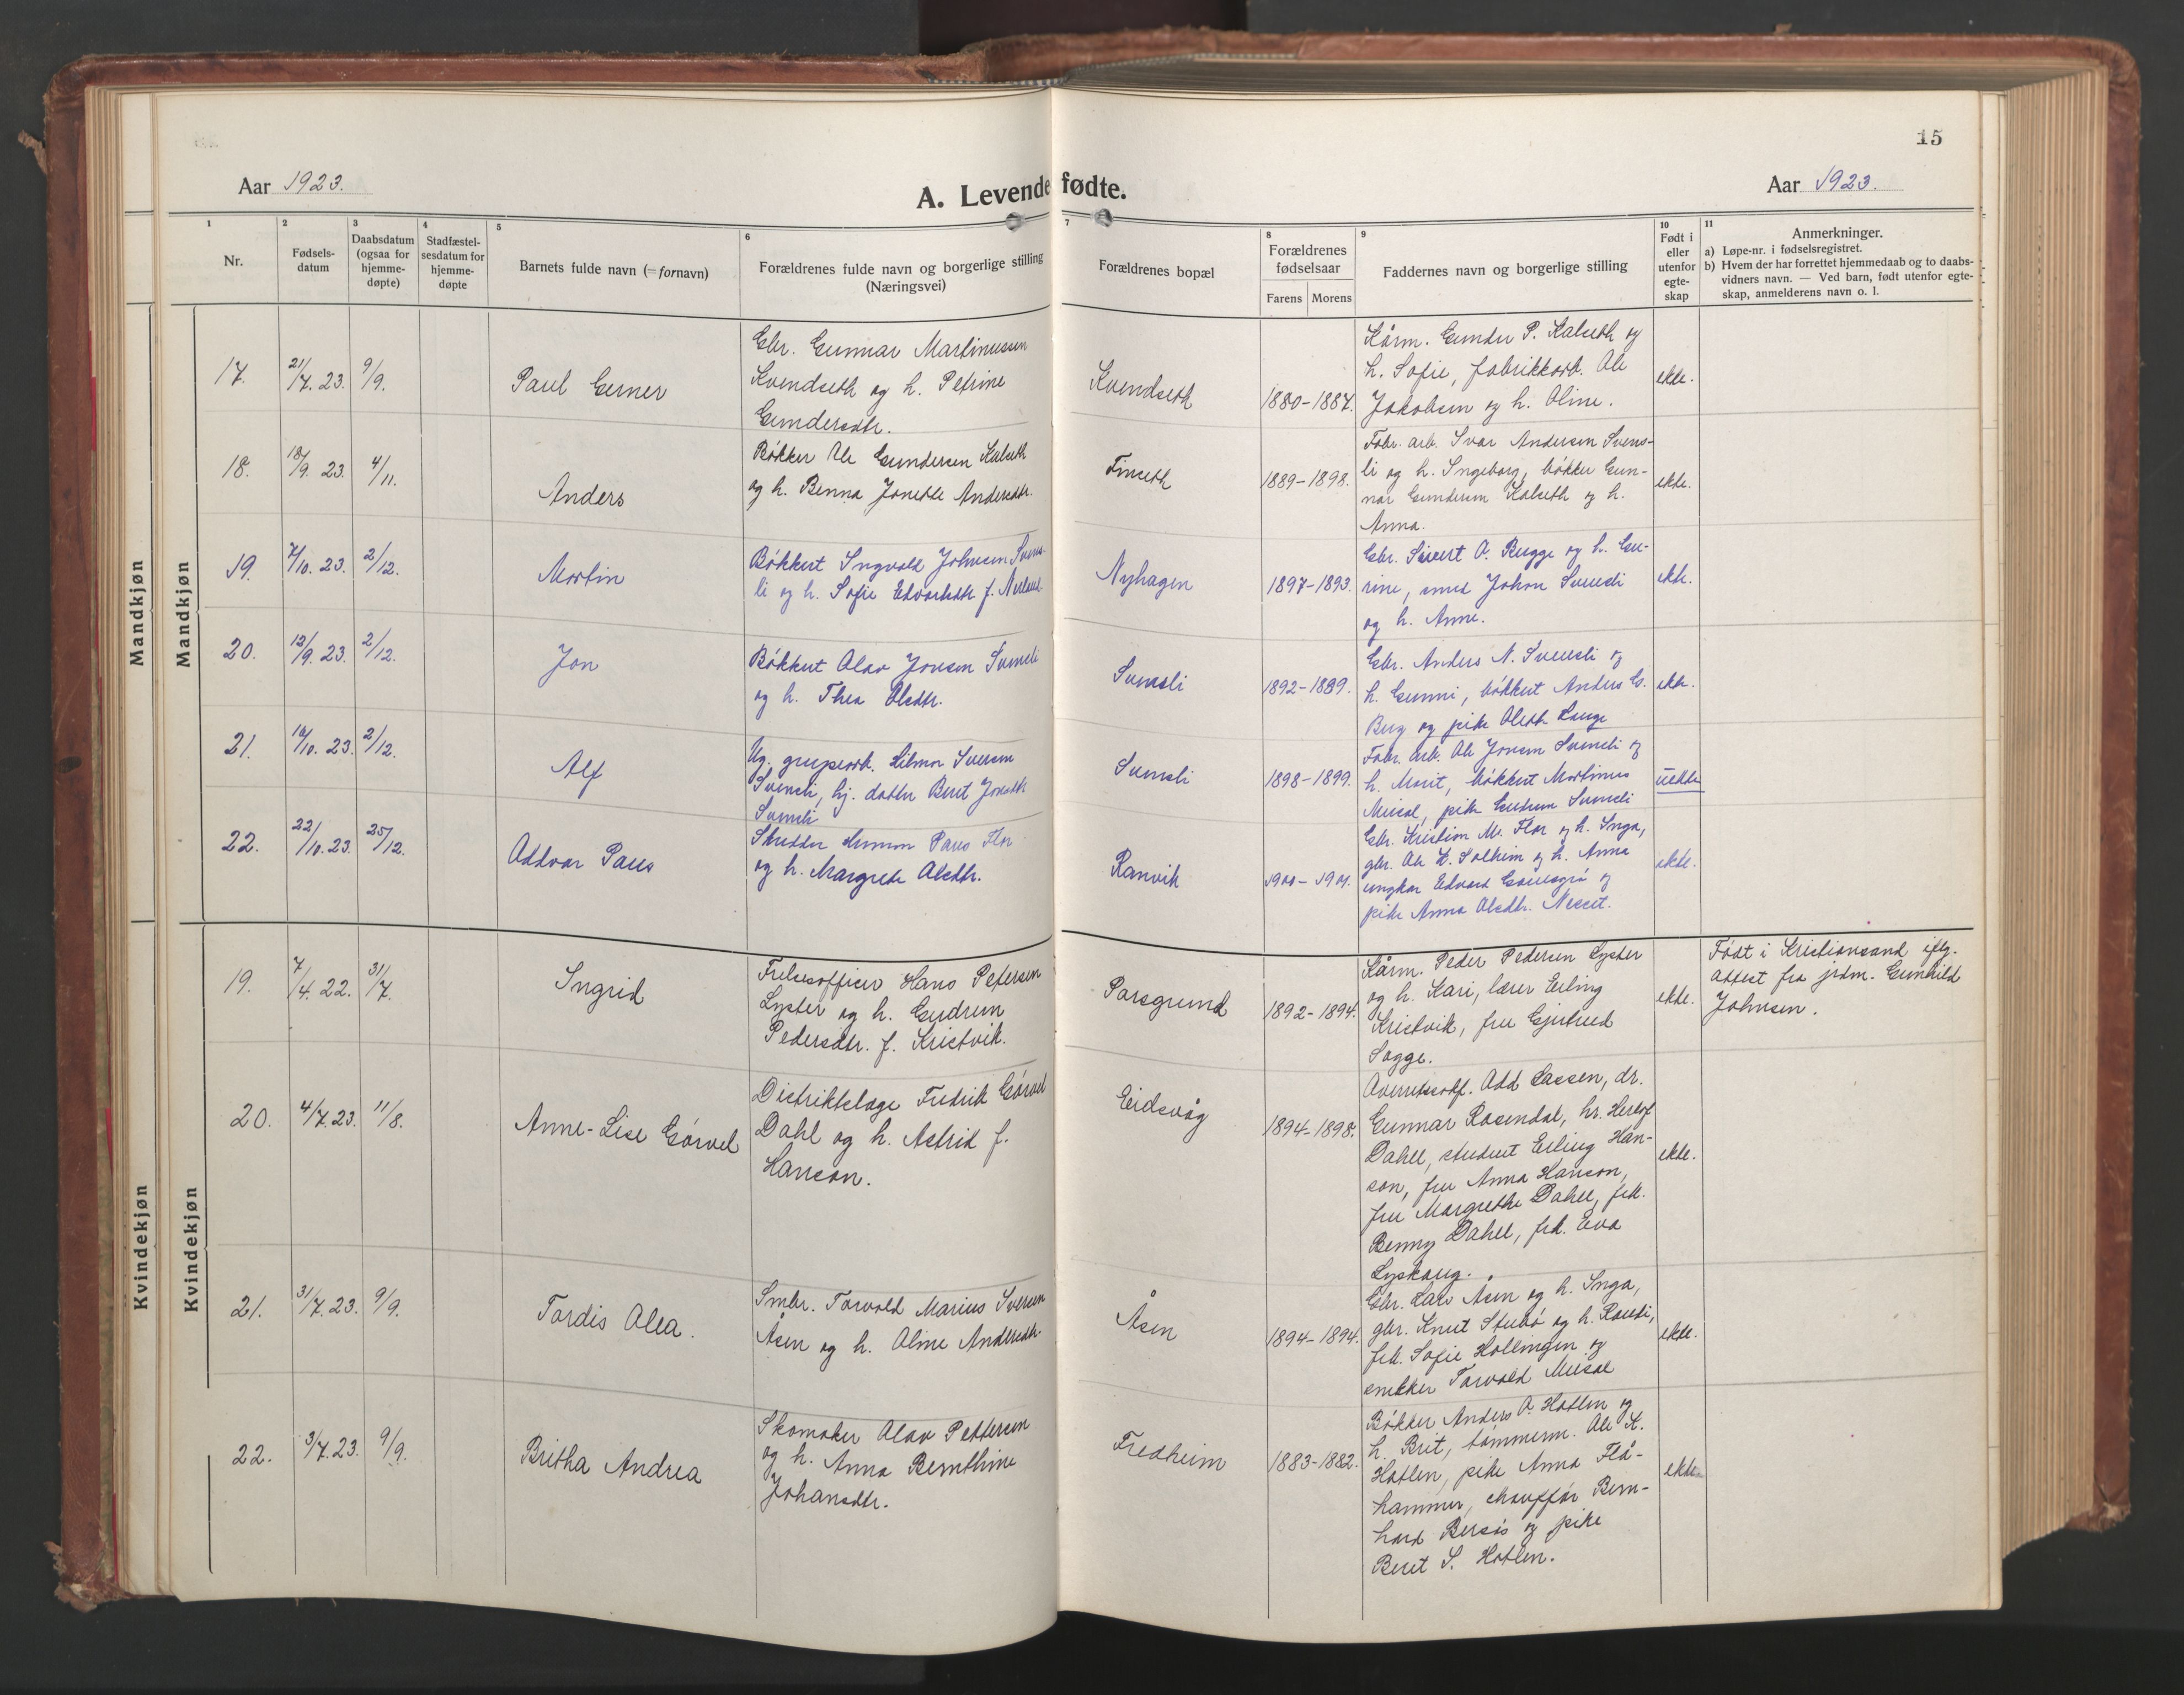 15
Aar 1923.
A. Levendefødte.
Aar 1923.
1 2 3 4 5 6 7 8 9 10 11
Nr.
Fødsels-
datum
Daabsdatum
(ogsaa for
hjemme-
døpte)
Stadfæstel-
sesdatum for
hjemme-
døpte
Barnets fulde navn (= fornavn)
Forældrenes fulde navn og borgerlige stilling
(Næringsvei)
Forældrenes bopæl
Forældrenes
fødselsaar
Farens Morens
Faddernes navn og borgerlige stilling
Født i
eller
utenfor
egte-
skap
Anmerkninger.
a) Løpe-nr. i fødselsregistret.
b) Hvem der har forrettet hjemmedaab og to daabs-
vidners navn. — Ved barn, født utenfor egte-
skap, anmelderens navn o. l.
Mandkjøn
Mandkjøn
17. 21/7. 23. 9/9.
Paul Gerner
Gbr. Gunnar Martinussen
Kvendseth og h. Petrine
Gundersdtr.
Kvendseth
1880-1887.
Kårm. Gunder P. Kalseth og
h. Sofie, fabrikkarb. Ole
Jakobsen og h. Oline.
ekte.
18. 18/9. 23 4/11.
Anders
Bøkker Ole Gundersen Kalseth
og h. Benna Jonette Andersdtr.
Tinseth
1889-1898.
Fabr. arb. Ivar Andersen Svens-
li og h. Ingeborg, bøkker Gun-
nar Gundersen Kalseth og h.
Anna.
ekte.
19. 7/10. 23. 2/12.
Martin
Bøkkert Ingvald Johnsen Svens-
li og h. Sofie Edvardsdtr. f.
Nyhagen
1897-1893.
Gbr. Sivert O. Bugge og h. Gu-
rine, smed Johan Svensli
og h. Anne.
ekte.
20. 12/9. 23. 2/12.
Jon
Bøkkert Olav Jonsen Svensli
og h. Thea Olsdtr.
Svensli
1892-1889.
Gbr. Anders N. Svensli og
h. Gunni, bøkkert Anders G.
Berg og pike Oleth Lange
ekte.
21. 16/10. 23. 2/12.
Alf
Ug. grupearb. Hilmar Iversen
Svensli, hj. datter Beret Jonsdtr.
Svensli
Svensli
1898-1899.
Fabr. arb. Ole Jonsen Svensli og
h. Marit, bøkkert Martinus
Meisal, pike Gudrun Svensli
uekte
22. 22/10. 23. 25/12.
Oddvar Paus
Skredder Herman Paus Flor
og h. Margrete Olsdtr.
Ranvik
1900-1901.
Gbr. Kristian M. Flor og h. Inga,
gbr. Ole H. Solheim og h. Anna
ungkar Edvard
pike Anna Olsdtr.
ekte.
Kvindekjøn
Kvindekjøn
19. 7/4. 22. 31/7.
Ingrid
Frelsesofficer Hans Petersen
Lyster og h. Gudrun
Pedersdtr. f. Kristvik.
Porsgrund
1892-1894.
Kårm. Peder Pedersen Lyster
og h. Kari, lærer Erling
Kristvik, fru Gjertrud
Sogge.
ekte.
Født i Kristiansand iflg.
attest fra jrdm. Gunhild
Johnsen.
20. 4/7. 23. 11/8.
Anne-Lise Görvel
Distriktslæge Fredrik Görvel
Dahl og h. Astrid f.
Hanson.
Eidsvåg
1894-1898.
Overretssakf. Odd Lassen, dr.
Gunnar Rosendal, hr. Herlof
Dahll, student Erling Han-
son, fru Anna Hanson,
fru Margrethe Dahll, frk.
Benny Dahll, frk. Eva
Lyskaug.
ekte.
21. 31/7. 23. 9/9.
Tordis Olea.
Smbr. Torvald Marius Iversen
Åsen og h. Oline Andersdtr.
Åsen
1894-1894.
Gbr. Lars Åsen og h. Inga,
gbr. Knut Stubø og h. Randi,
frk. Sofie Hollingen og
snekker Torvald Meisal
ekte.
22. 3/7. 23. 9/9.
Britha Andrea
Skomaker Olav Pettersen
og h. Anna Bernthine
Johansdtr.
Fredheim
1883-1882.
Bøkker Anders O. Hoflen og
h. Brit, tømmerm. Ole K.
Hoflen, pike Anna Flå-
hammer, chauffør Bern-
hard Bersås og pike
Beret S. Hoflen.
ekte.